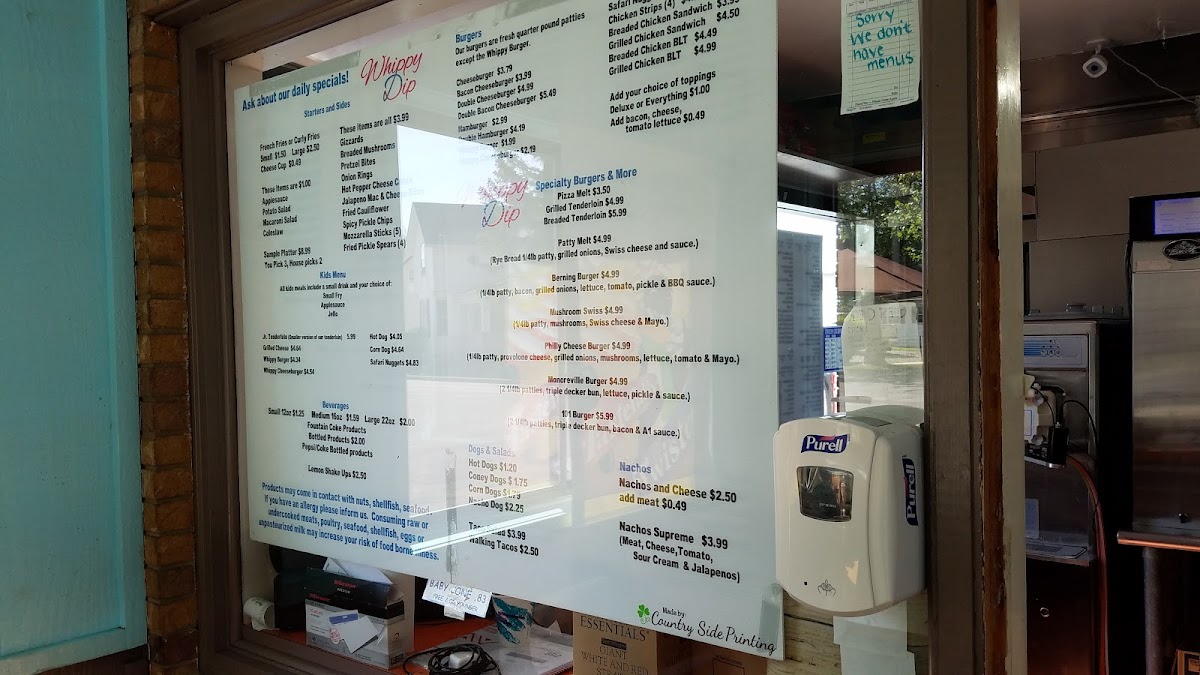 Ask about our daily specials!
Whippy
Dip
Starters and Sides
French Fries or Curly Fries
Small $1.50 Large $2.50
Cheese Cup $0.49
These items are $1.00
Applesauce
Potato Salad
Macaroni Salad
Coleslaw
Sample Platter $8.99
You Pick 3, House picks 2
These items are all $3.99
Gizzards
Breaded Mushrooms
Pretzel Bites
Onion Rings
Hot Pepper Cheese
Jalapeno Mac & Cheese
Fried Cauliflower
Spicy Pickle Chips
Mozzarella Sticks (5)
Fried Pickle Spears (4)
Kids Menu
All kids meals include a small drink and your choice of:
Small Fry
Applesauce
Jello
Jr. Tenderloin (Smaller version of our tenderloin) 5.99
Grilled Cheese $4.64
Whippy Burger $4.34
Whippy Cheeseburger $4.54
Hot Dog $4.05
Corn Dog $4.64
Safari Nuggets $4.83
Beverages
Small 12oz $1.25 Medium 16oz $1.59 Large 22oz $2.00
Fountain Coke Products
Bottled Products $2.00
Pepsi/Coke Bottled products
Lemon Shake Ups $2.50
Products may come in contact with nuts, shellfish, seafood.
If you have an allergy please inform us. Consuming raw or
undercooked meats, poultry, seafood, shellfish, eggs or
unpasteurized milk may increase your risk of food borne illness.
Burgers
Our burgers are fresh quarter pound patties
except the Whippy Burger.
Cheeseburger $3.79
Bacon Cheeseburger $3.99
Double Cheeseburger $4.99
Double Bacon Cheeseburger $5.49
Hamburger $2.99
Double Hamburger $4.19
$1.99
$2.19
Safari
Chicken Strips (4)
Breaded Chicken Sandwich
Grilled Chicken Sandwich $4.50
Breaded Chicken BLT $4.49
Grilled Chicken BLT $4.99
Add your choice of toppings
Deluxe or Everything $1.00
Add bacon, cheese,
tomato lettuce $0.49
Whippy
Dip
Specialty Burgers & More
Pizza Melt $3.50
Grilled Tenderloin $4.99
Breaded Tenderloin $5.99
Patty Melt $4.99
(Rye Bread 1/4lb patty, grilled onions, Swiss cheese and sauce.)
Berning Burger $4.99
(1/4lb patty, bacon, grilled onions, lettuce, tomato, pickle & BBQ sauce.)
Mushroom Swiss $4.99
(1/4lb patty, mushrooms, Swiss cheese & Mayo.)
Philly Cheese Burger $4.99
(1/4lb patty, provolone cheese, grilled onions, mushrooms, lettuce, tomato & Mayo.)
Monoreville Burger $4.99
(2 1/4lb patties, triple decker bun, lettuce, pickle & sauce.)
101 Burger $5.99
(2 1/4lb patties, triple decker bun, bacon & A1 sauce.)
Dogs & Salads
Hot Dogs $1.20
Coney Dogs $1.75
Corn Dogs $1.79
Nacho Dog $2.25
$3.99
Walking Tacos $2.50
Nachos
Nachos and Cheese $2.50
add meat $0.49
Nachos Supreme $3.99
(Meat, Cheese, Tomato,
Sour Cream & Jalapenos)
Made by:
Country Side Printing
Sorry
We don't
have
menus
Purell
Purell
BABY CONE .83
ESSENTIALS
GIANT
WHITE AND RED